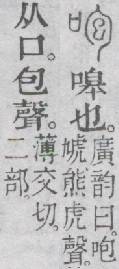 嗥也。廣韵曰。咆
熊虎聲。
从口。包聲。薄交切。
二部。